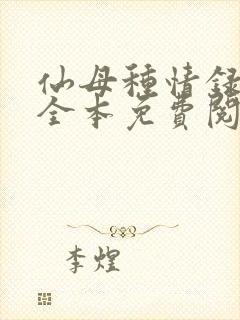 仙母種情録
全本免費閱
李煌